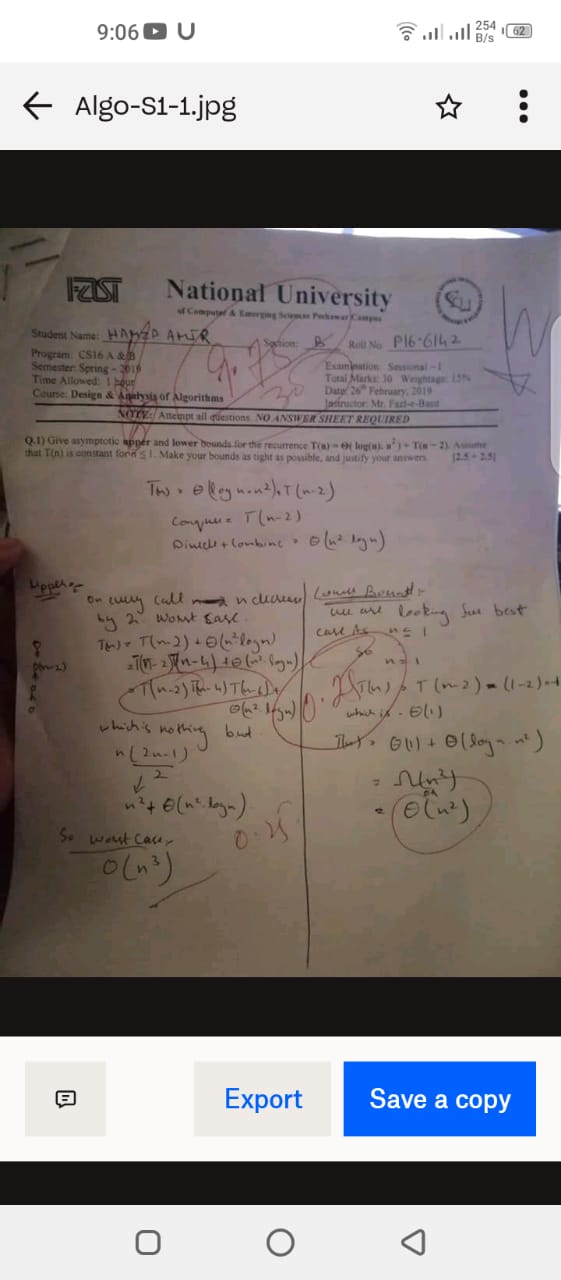 9:06
254 B/s
62
Algo-S1-1.jpg
National University
of Computer & Emerging Sciences Peshawar Campus
Student Name: HAMZA AMIR Section: B Roll No P16-6142
Program: CS16 A & B
Semester: Spring - 2019
Time Allowed: 1 hour
Course: Design & Analysis of Algorithms
Examination: Sessional-1
Total Marks: 30 Weightage: 15%
Date: 26th February, 2019
Instructor: Mr. Fazl-e-Basit
9.75
30
NOTE: Attempt all questions. NO ANSWER SHEET REQUIRED
Q.1) Give asymptotic upper and lower bounds for the recurrence T(n) = Θ( log(n). n²) + T(n - 2). Assume
that T(n) is constant for n ≤ 1. Make your bounds as tight as possible, and justify your answers. [2.5 + 2.5]
T(n) = Θ(log n · n²) + T(n-2)
Conquer = T(n-2)
Divide + Combine = Θ(n² log n)
Upper
on every call n decreases
by 2. Worst Case.
T(n) = T(n-2) + Θ(n² log n)
= T(n-2) T(n-4) + Θ(n² log n)
= T(n-2) T(n-4) T(n-6) +
Θ(n² log n)
which is nothing but
n(2n-1)
2
n² + Θ(n² log n)
0.25
So worst Case,
O(n³)
Lower Bound
we are looking for best
case As n ≤ 1
So
n = 1
0.25
T(n) = T(n-2) = (1-2) = -1
which is = Θ(1)
= Θ(1) + Θ(log n · n²)
= Ω(n²)
OR
= Θ(n²)
Export
Save a copy